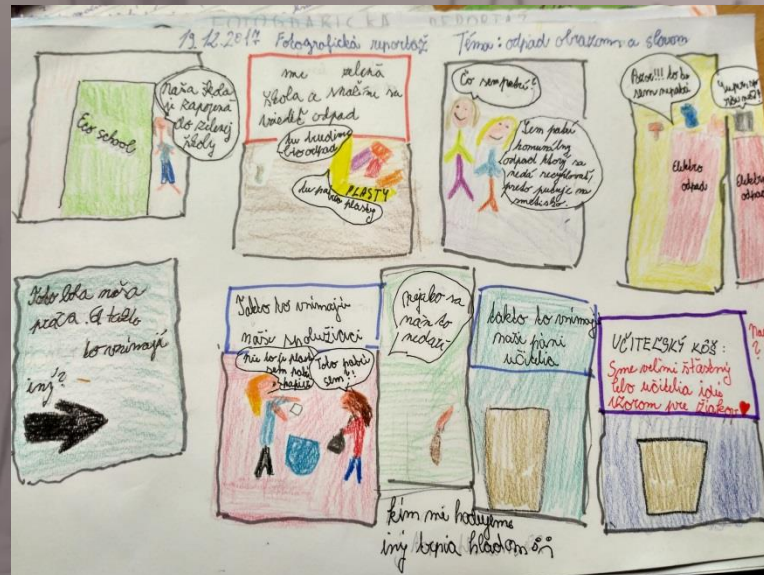 FOTOGRAFICKÁ REPORTÁŽ
19.12.2017 Fotografická reportáž Téma: odpad obrazom a slovom
Eco school
Naša škola
je zapojená
do zelenej
školy
sme zelená
škola a snažíme sa
triediť odpad
tu triedime
bioodpad
PLASTY
tu patria plasty
Čo sem patrí?
Sem patrí
komunálny
odpad ktorý sa
nedá recyklovať,
preto putuje na
smetisko.
Pozor!!! to tu
sem nepatrí
Elektro
odpad
Elektro
odpad
Toto bola naša
práca. A takto
to vnímajú
iný?
Takto to vnímajú
naše spolužiaci
nie to je plast
sem patrí
papier
Toto patrí
sem!!
nejako sa
nám to
nedarí
takto to vnímajú
naše páni
učitelia
UČITEĽSKÝ KÔŠ:
Sme veľmi šťastný
lebo učitelia idú
vzorom pre žiakov
kým mi hodujeme
iný trpia hladom